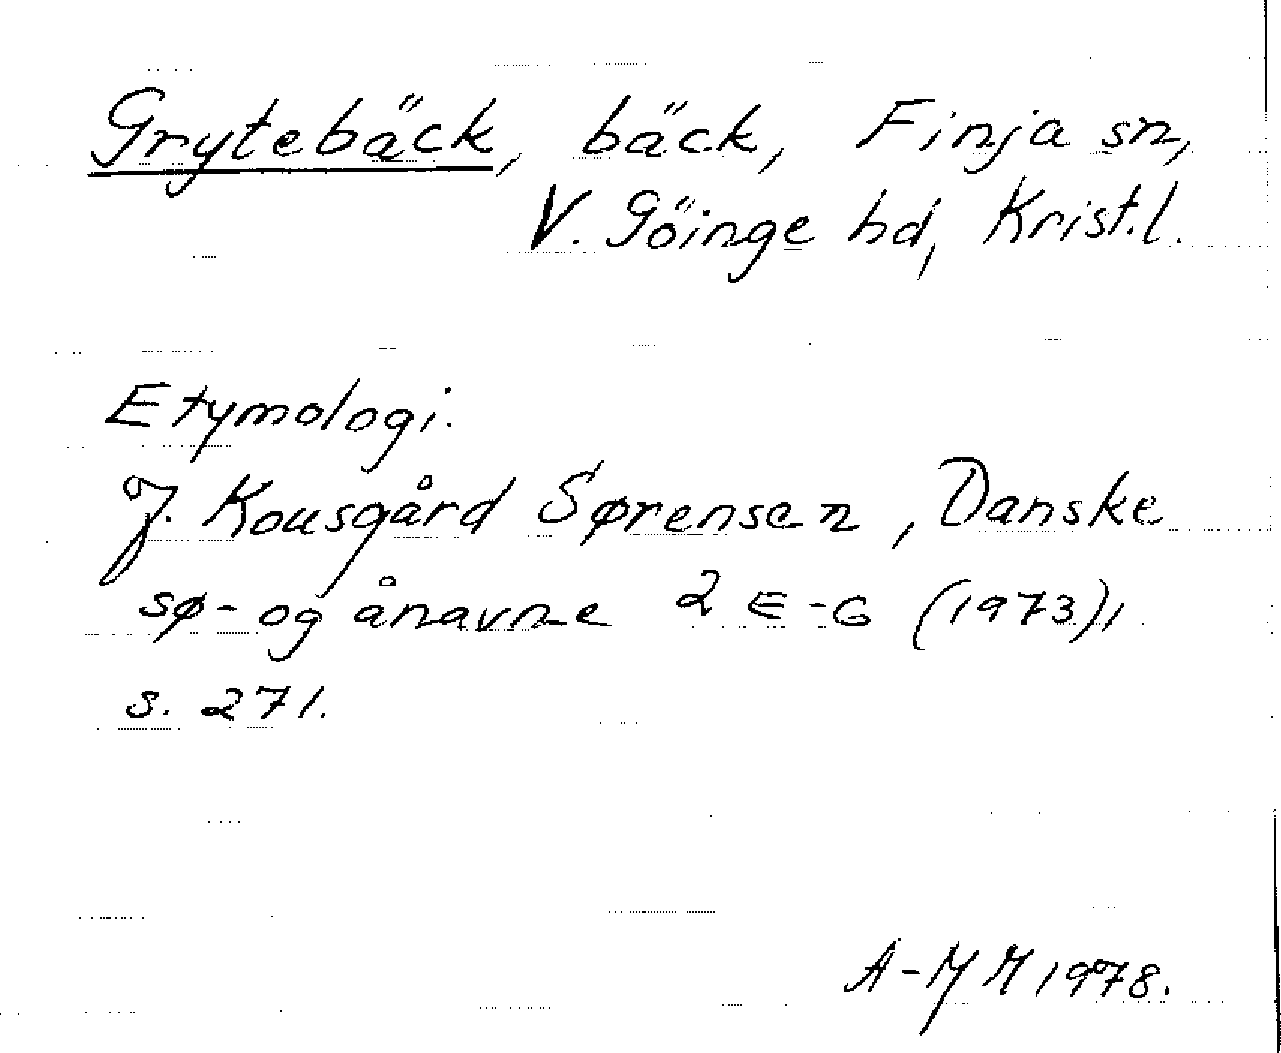 Grytebäck, bäck, Finja sn,
V. Göinge hd, Krist.l.
Etymologi.
J. Kousgård Sørensen, Danske
sø- og ånavne 2 E-G (1973),
s. 271.
A-M M 1978.